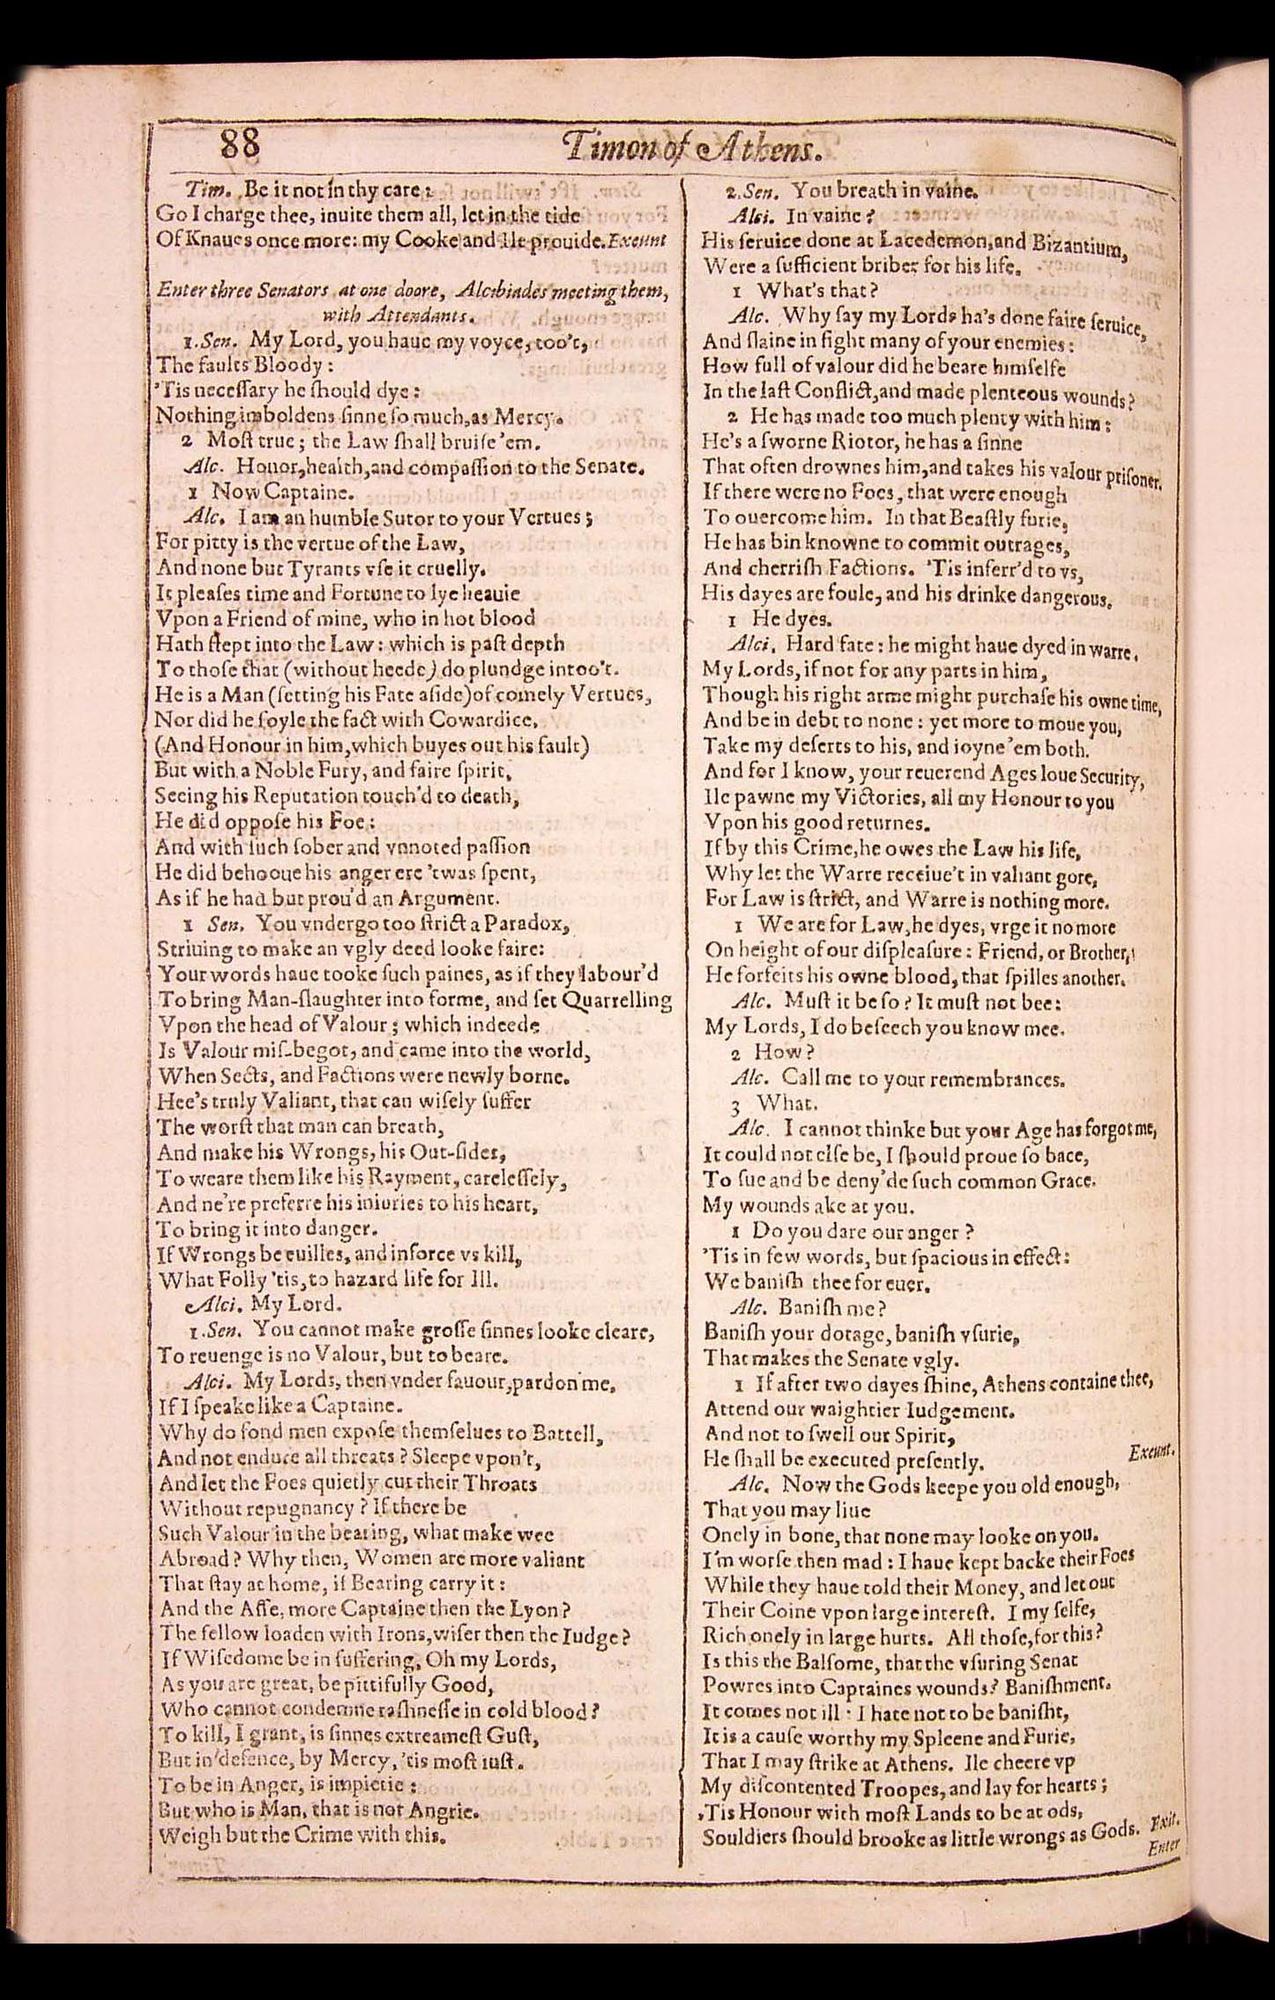 88
Timon of Athens.
Tim. Be it not in thy care:
Go I charge thee, inuite them all, let in the tide
Of Knaues once more: my Cooke and Ile prouide. Exeunt
Enter three Senators at one doore, Alcibiades meeting them,
with Attendants.
1.Sen. My Lord, you haue my voyce, too't,
The faults Bloody:
'Tis necessary he should dye:
Nothing imboldens sinne so much, as Mercy.
2 Most true; the Law shall bruise 'em.
Alc. Honor, health, and compassion to the Senate.
1 Now Captaine.
Alc. I am an humble Sutor to your Vertues;
For pitty is the vertue of the Law,
And none but Tyrants vse it cruelly.
It pleases time and Fortune to lye heauie
Vpon a Friend of mine, who in hot blood
Hath stept into the Law: which is past depth
To those that (without heede) do plundge intoo't.
He is a Man (setting his Fate aside) of comely Vertues,
Nor did he soyle the fact with Cowardice,
(And Honour in him, which buyes out his fault)
But with a Noble Fury, and faire spirit,
Seeing his Reputation touch'd to death,
He did oppose his Foe:
And with such sober and vnnoted passion
He did behooue his anger ere 'twas spent,
As if he had but prou'd an Argument.
1 Sen. You vndergo too strict a Paradox,
Striuing to make an vgly deed looke faire:
Your words haue tooke such paines, as if they labour'd
To bring Man-slaughter into forme, and set Quarrelling
Vpon the head of Valour; which indeede
Is Valour mis-begot, and came into the world,
When Sects, and Factions were newly borne.
Hee's truly Valiant, that can wisely suffer
The worst that man can breath,
And make his Wrongs, his Out-sides,
To weare them like his Rayment, carelessely,
And ne're preferre his iniuries to his heart,
To bring it into danger.
If Wrongs be euilles, and inforce vs kill,
What Folly 'tis, to hazard life for Ill.
Alci. My Lord.
1.Sen. You cannot make grosse sinnes looke cleare,
To reuenge is no Valour, but to beare.
Alci. My Lords, then vnder fauour, pardon me,
If I speake like a Captaine.
Why do fond men expose themselues to Battell,
And not endure all threats? Sleepe vpon't,
And let the Foes quietly cut their Throats
Without repugnancy? If there be
Such Valour in the bearing, what make wee
Abroad? Why then, Women are more valiant
That stay at home, if Bearing carry it:
And the Asse, more Captaine then the Lyon?
The fellow loaden with Irons, wiser then the Iudge?
If Wisedome be in suffering, Oh my Lords,
As you are great, be pittifully Good,
Who cannot condemne rashnesse in cold blood?
To kill, I grant, is sinnes extreamest Gust,
But in defence, by Mercy, 'tis most iust.
To be in Anger, is impietie:
But who is Man, that is not Angrie.
Weigh but the Crime with this.
2.Sen. You breath in vaine.
Alci. In vaine?
His seruice done at Lacedemon, and Bizantium,
Were a sufficient briber for his life.
1 What's that?
Alc. Why say my Lords ha's done faire seruice,
And slaine in fight many of your enemies:
How full of valour did he beare himselfe
In the last Conflict, and made plenteous wounds?
2 He has made too much plenty with him:
He's a sworne Riotor, he has a sinne
That often drownes him, and takes his valour prisoner.
If there were no Foes, that were enough
To ouercome him. In that Beastly furie,
He has bin knowne to commit outrages,
And cherrish Factions. 'Tis inferr'd to vs,
His dayes are foule, and his drinke dangerous.
1 He dyes.
Alci. Hard fate: he might haue dyed in warre.
My Lords, if not for any parts in him,
Though his right arme might purchase his owne time,
And be in debt to none: yet more to moue you,
Take my deserts to his, and ioyne 'em both.
And for I know, your reuerend Ages loue Security,
Ile pawne my Victories, all my Honour to you
Vpon his good returnes.
If by this Crime, he owes the Law his life,
Why let the Warre receiue't in valiant gore,
For Law is strict, and Warre is nothing more.
1 We are for Law, he dyes, vrge it no more
On height of our displeasure: Friend, or Brother,
He forfeits his owne blood, that spilles another.
Alc. Must it be so? It must not bee:
My Lords, I do beseech you know mee.
2 How?
Alc. Call me to your remembrances.
3 What.
Alc. I cannot thinke but your Age has forgot me,
It could not else be, I should proue so bace,
To sue and be deny'de such common Grace.
My wounds ake at you.
1 Do you dare our anger?
'Tis in few words, but spacious in effect:
We banish thee for euer.
Alc. Banish me?
Banish your dotage, banish vsurie,
That makes the Senate vgly.
1 If after two dayes shine, Athens containe thee,
Attend our waightier Iudgement.
And not to swell our Spirit,
He shall be executed presently. Exeunt.
Alc. Now the Gods keepe you old enough,
That you may liue
Onely in bone, that none may looke on you.
I'm worse then mad: I haue kept backe their Foes
While they haue told their Money, and let out
Their Coine vpon large interest. I my selfe,
Rich onely in large hurts. All those, for this?
Is this the Balsome, that the vsuring Senat
Powres into Captaines wounds? Banishment.
It comes not ill: I hate not to be banisht,
It is a cause worthy my Spleene and Furie,
That I may strike at Athens. Ile cheere vp
My discontented Troopes, and lay for hearts;
'Tis Honour with most Lands to be at ods,
Souldiers should brooke as little wrongs as Gods. Exit.
Enter